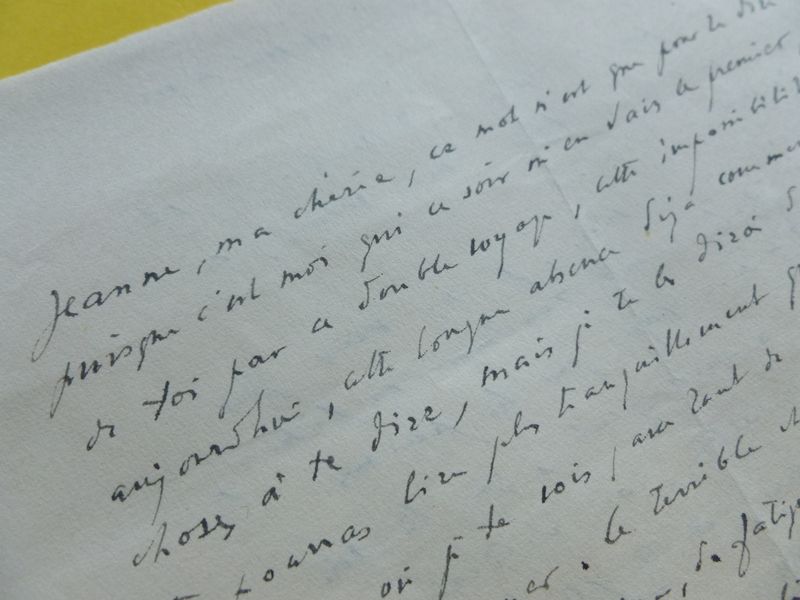 Jeanne, ma chérie, ce mot n'est que pour te dire
puisque c'est moi qui ce soir m'en vais le premier,
de toi par ce double voyage, cette impossibilit
aujourd'hui, cette longue absence déjà commen
choses à te dire, mais je te les dirai
pourras lire plus tranquillement
où je te vois, avec tant de
le terrible
de fatig